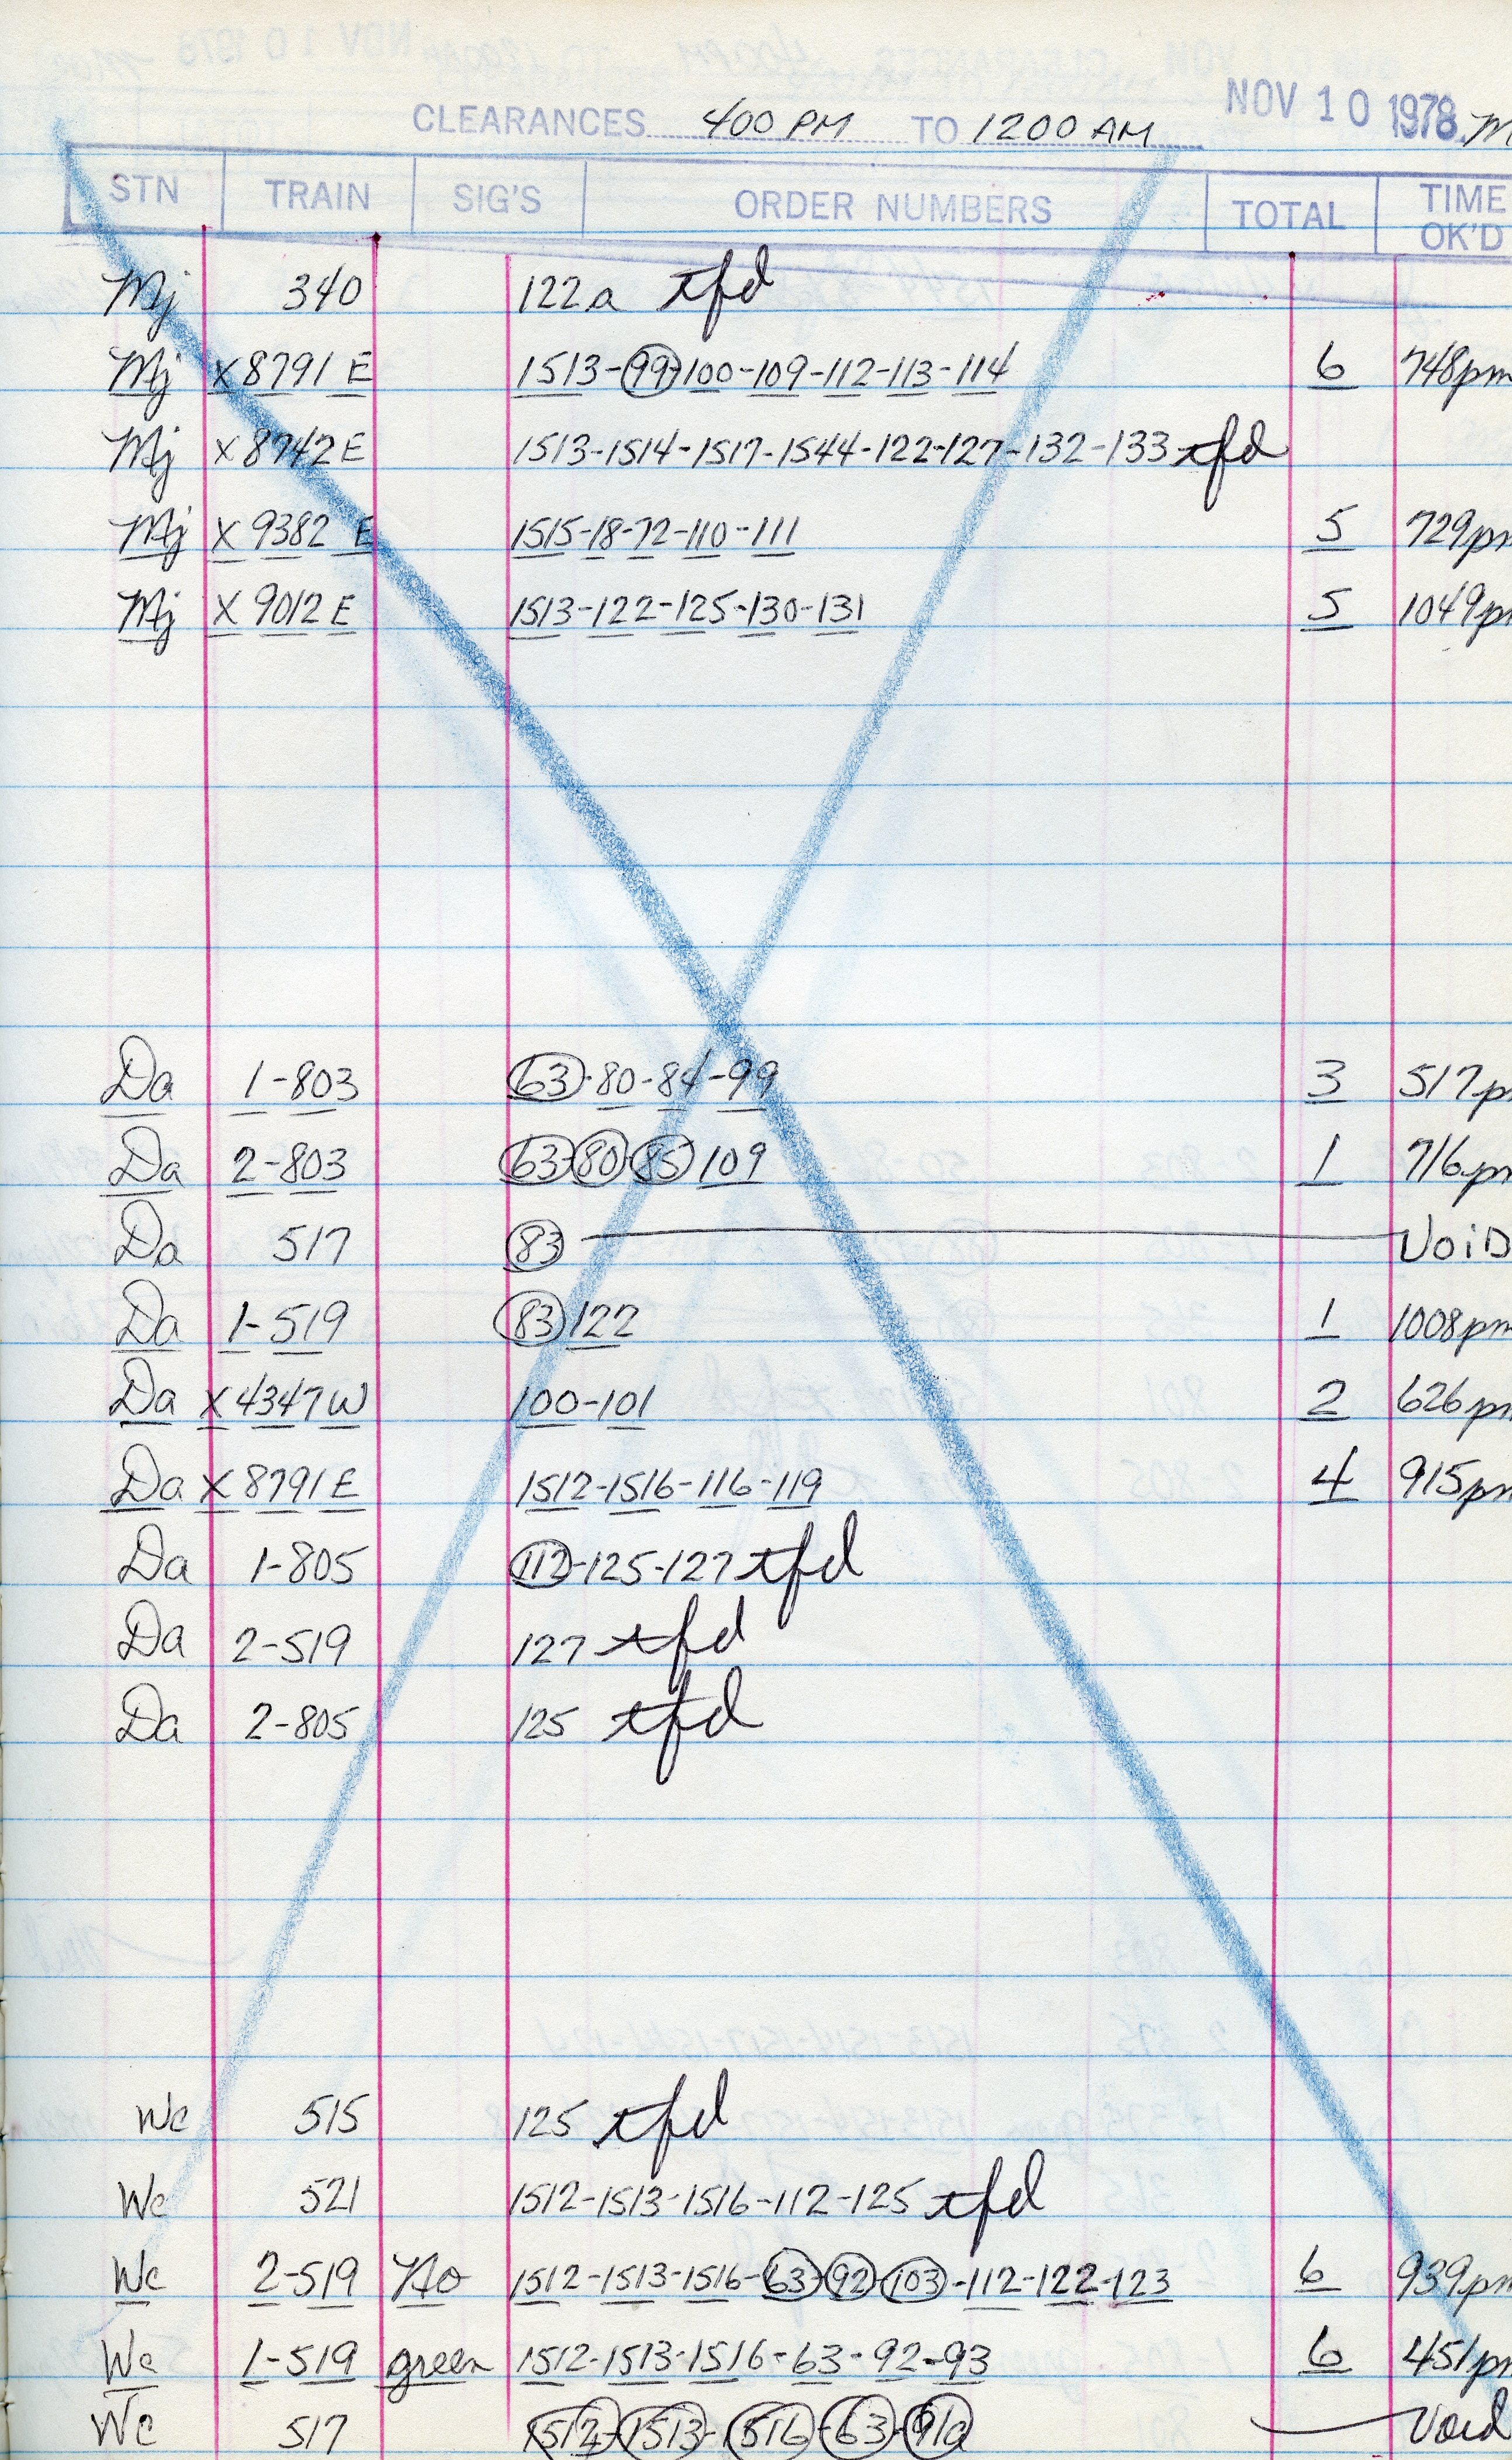 CLEARANCES 400 PM TO 1200 AM NOV 10 1978
STN TRAIN SIG'S ORDER NUMBERS TOTAL TIME OK'D
Mj 340 122a tfd
Mj X8791 E 1513-99-100-109-112-113-114 6 748pm
Mj X8742E 1513-1514-1517-1544-122-127-132-133 tfd
Mj X 9382 E 1515-18-72-110-111 5 729pm
Mj X 9012 E 1513-122-125-130-131 5 1049pm
Da 1-803 63-80-84-99 3 517p
Da 2-803 63-80-85 109 1 716pm
Da 517 83 VoiD
Da 1-519 83 122 1 1008pm
Da X4347W 100-101 2 626pm
Da X8791E 1512-1516-116-119 4 915pm
Da 1-805 112-125-127 tfd
Da 2-519 127 tfd
Da 2-805 125 tfd
Wc 515 125 tfd
Wc 521 1512-1513-1516-112-125 tfd
Wc 2-519 No 1512-1513-1516-63-92-103-112-122-123 6 939pm
Wc 1-519 green 1512-1513-1516-63-92-93 6 451pm
Wc 517 1512-1513-1516-63-91a Void